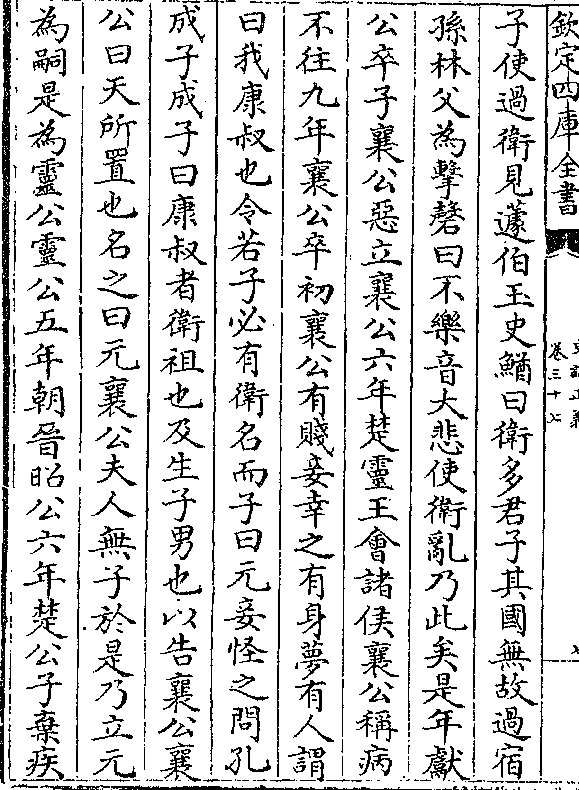 欽定四庫全書
史記正義
卷三十七
子使過衛見蘧伯玉史鰌曰衛多君子其國無故過宿
孫林父為擊磬曰不樂音大悲使衛亂乃此矣是年獻
公卒子襄公惡立襄公六年楚靈王會諸侯襄公稱病
不往九年襄公卒初襄公有賤妾幸之有身夢有人謂
曰我康叔也令若子必有衛名而子曰元妾怪之問孔
成子成子曰康叔者衛祖也及生子男也以告襄公襄
公曰天所置也名之曰元襄公夫人無子於是乃立元
為嗣是為靈公靈公五年朝晉昭公六年楚公子棄疾